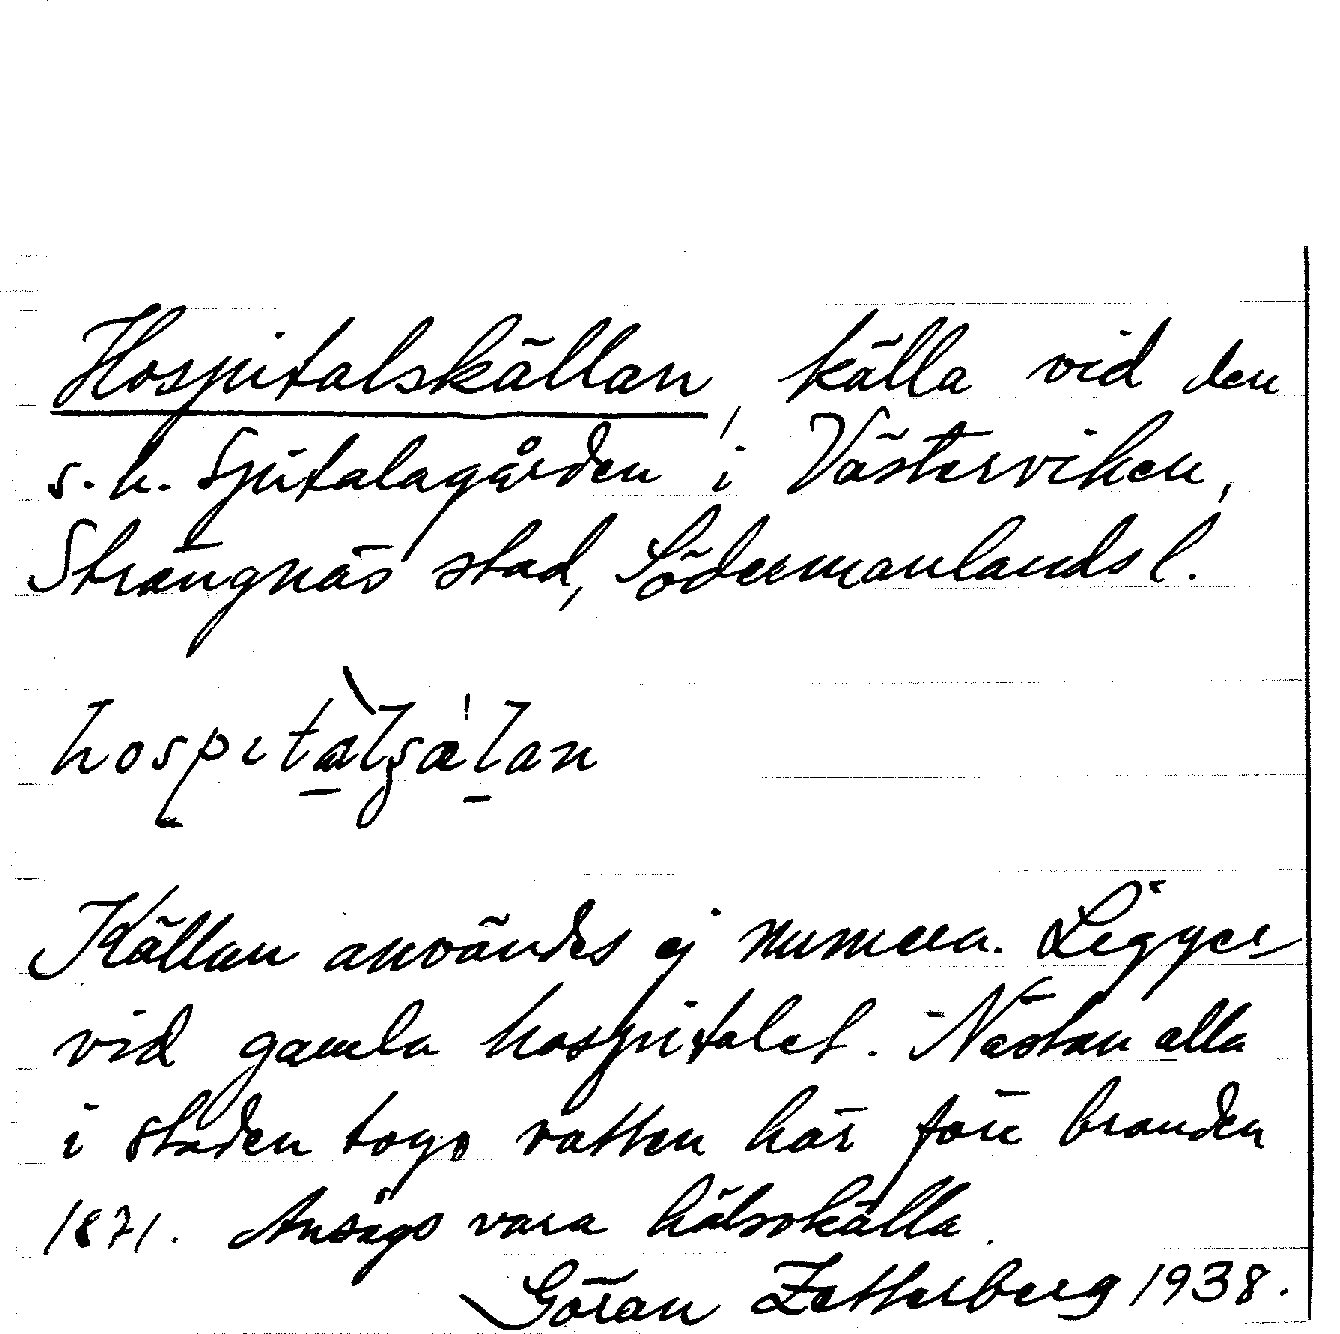 Hospitalskällan, källa vid den
s.k. Spitalagården i Västerviken,
Strängnäs stad, Södermanlands l.
hospitàlʂälan
Källan användes ej numera. Ligger
vid gamla hospitalet. Nästan alla
i staden togo vatten här före branden
1871. Ansågs vara hälsokälla.
Göran Zetterberg 1938.